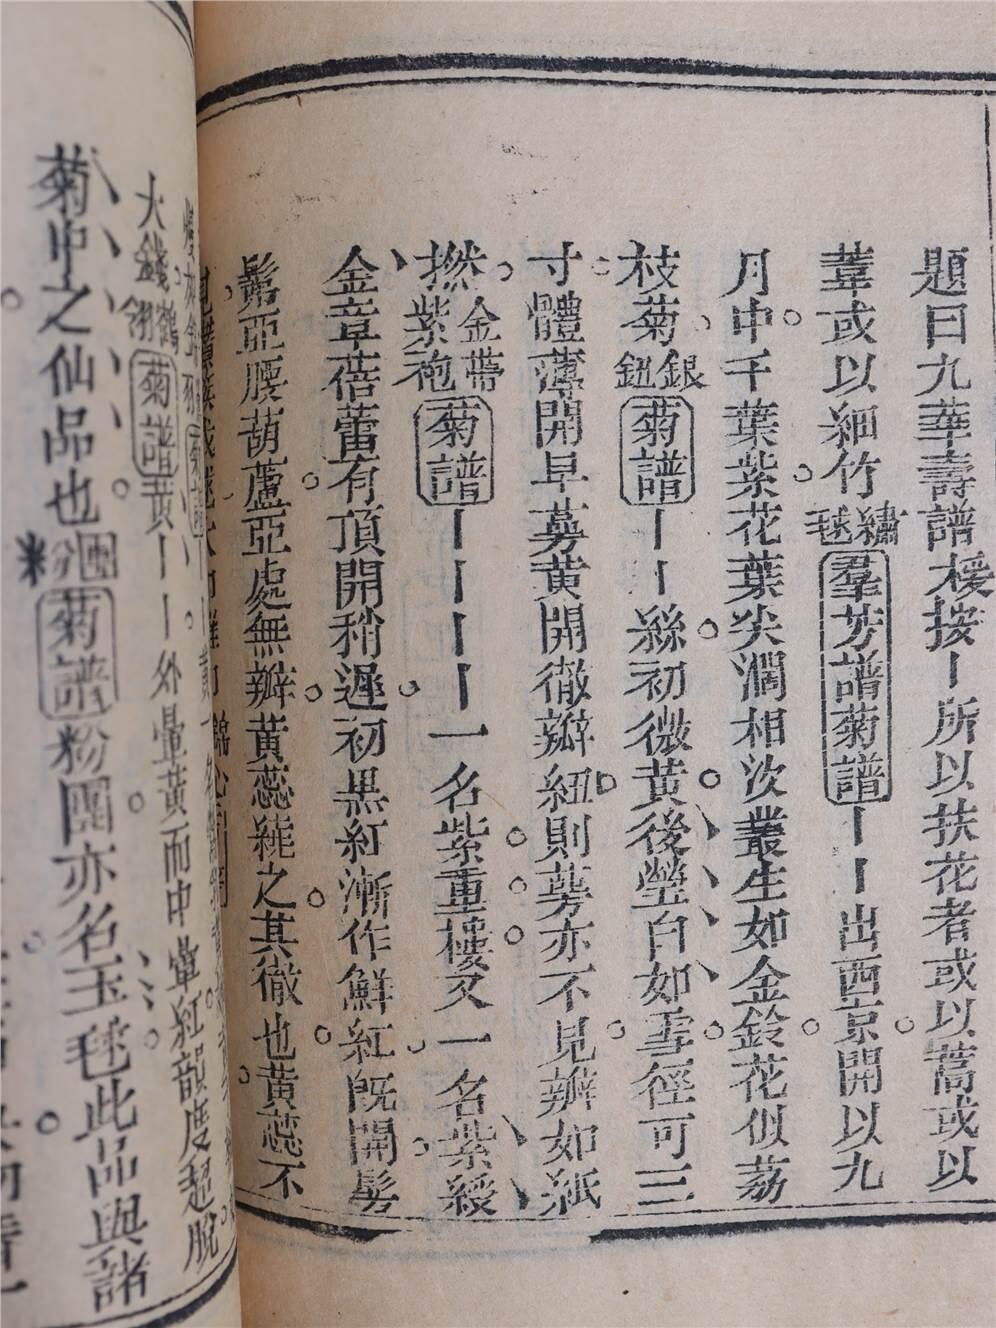 題曰九華壽譜椄按丨所以扶花者或以蒿或以
葦或以細竹繡毬羣芳譜菊譜丨丨出西京開以九
月中千葉紫花葉尖濶相次叢生如金鈴花似荔
枝菊銀鈕菊譜丨丨絲初微黃後瑩白如雪徑可三
寸體薄開早蒭黃開徹瓣紐則蒭亦不見瓣如紙
撚金帶紫袍菊譜丨丨丨丨一名紫重樓又一名紫綬
金章蓓蕾有頂開稍遲初黒紅漸作鮮紅既開髣
髴亞腰葫蘆亞處無瓣黃蕊繞之其徹也黃蕊不
大錢鶴翎菊譜黃丨丨外暈黃而中暈紅韻度超脫
菊中之仙品也粉團菊譜粉團亦名玉毬此品與諸